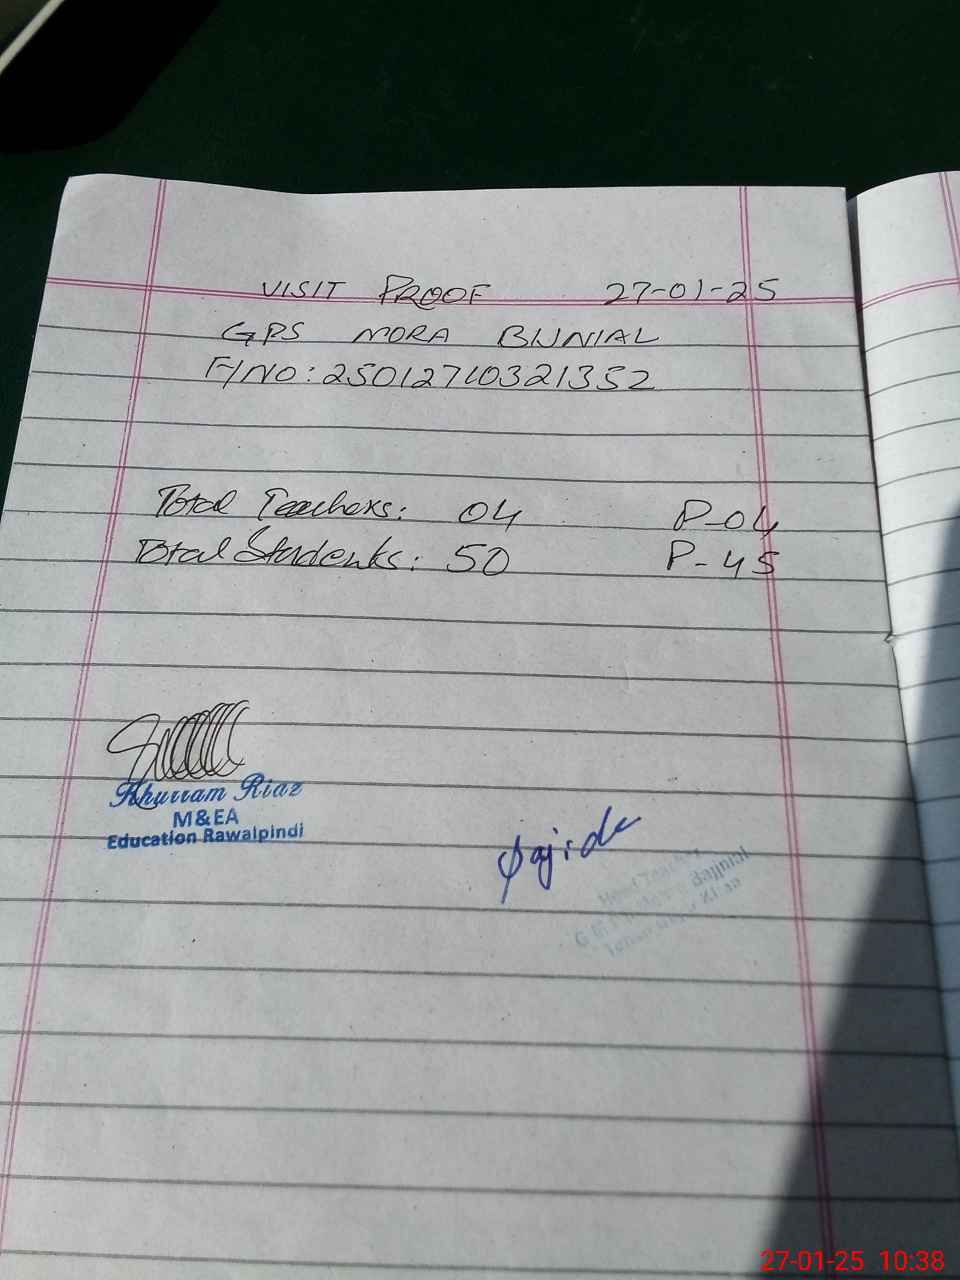 VISIT PROOF 27-01-25
GPS MORA BIJNIAL
F/NO: 25012710321352
Total Teachers: 04 P-04
Total Students: 50 P-45
Khurram Riaz
M&EA
Education Rawalpindi
Sajida
Head Teacher
Bajjnial
27-01-25 10:38